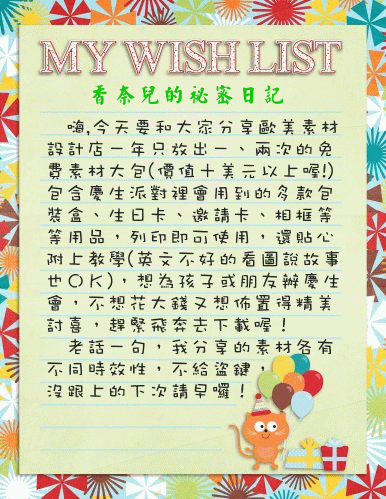 MY WISH LIST
香奈兒的祕密日記
嗨,今天要和大家分享歐美素材
設計店一年只放出一、兩次的免
費素材大包(價值十美元以上喔!)
包含慶生派對裡會用到的多款包
裝盒、生日卡、邀請卡、相框等
等用品，列印即可使用，還貼心
附上教學(英文不好的看圖說故事
也OK)，想為孩子或朋友辦慶生
會，不想花大錢又想佈置得精美
討喜，趕緊飛奔去下載喔！
老話一句，我分享的素材各有
不同時效性，不給盜鍵，
沒跟上的下次請早囉！